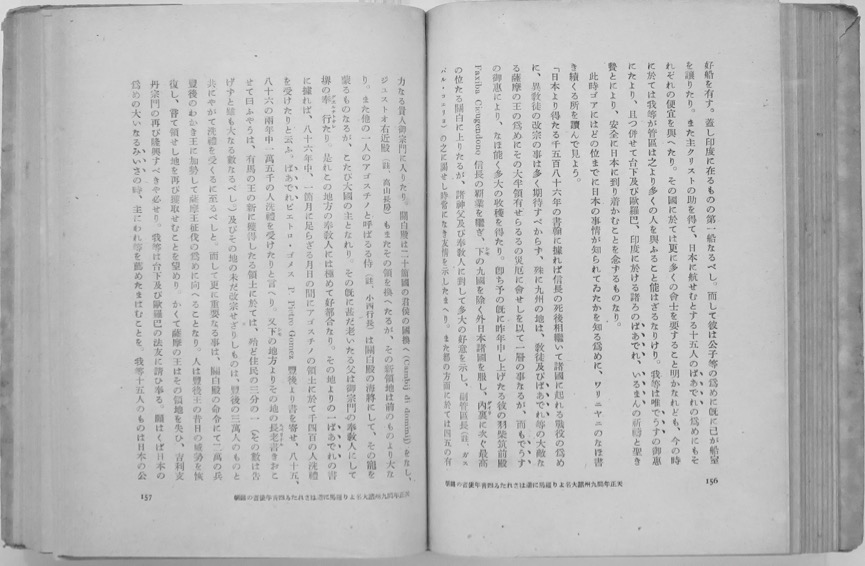 好船を有す。蓋し印度に在るものの第一船なるべし。而して彼は公子等の爲めに既に己が船室
を讓りたり。また主クリストの助を得て、日本に航せむとする十五人のぱあでれの爲めにもそ
れぞれの便宜を與へたり。その國に於ては更に多くの會士を要すること明かなれども、今の時
に於ては我等が管區は之より多くの人を與ふること能はざるなりけり。我等は唯でうすの御惠
にたより、且つ併せて台下及び歐羅巴、印度に於ける諸ろのぱあでれ、いるまんの祈禱と聖き
贄とにより、安全に日本に到り着かむことを念ずるものなり。
此時ゴアにはどの位までに日本の事情が知られてゐたかを知る爲めに、ワリニヤニのなほ書
き續くる所を讀んで見よう。
「日本より得たる千五百八十六年の書翰に據れば信長の死後相繼いで諸國に起れる戰役の爲め
に、異敎徒の改宗の事は多く期待すべからず、殊に九州の地は、敎徒及びぱあでれ等の大敵な
る薩摩の王の爲めにその大半領有せらるるの災厄に會せしを以て一層の事なるが、而もでうす
の御惠により、なほ能く多大の收穫を得たり。卽ち予の既に昨年中し上げたる彼の羽柴筑前殿
Faxiba Cicugendono 信長の覇業を繼ぎ、下の九國を除く外日本諸國を服し、內裏に次ぐ最高
の位たる關白に上りたるが、諸神父及び奉敎人に對して多大の好意を示し、副管區長(註、ガス
パル・コエリョ)の之に謁せし時常になき友情を示したまへり。また都の方面に於ては四五の有
156
天正年間九州諸大名より羅馬に遣はされたる四靑年使者の事蹟
力なる貴人御宗門に入りたり。關白殿は二十箇國の君侯の國換へ (Cambij di dominij) をなし、
ジュストオ右近殿(註、高山長房)もまたその領を換へたるが、その新領地は前のものより大な
り。また他の一人のアゴスチノと呼ばるる侍(註、小西行長)は關白殿の海將にして、その寵を
蒙るものなるが、こたび大國の主となれり。その既に甚だ老いたる父は御宗門の奉敎人にして
堺の奉行たり。是れこの地方の奉敎人には極めて好都合なり。その地よりの一ぱあでれの書
に據れば、八十六年中、一箇月に足らざる月日の間にアゴスチノの領土に於て千四百の人洗禮
を受けたりと云ふ。ぱあでれピエトロ・ゴメス P. Pietro Gomez 豐後より書を寄せ、八十五、
八十六の兩年中一萬五千の人洗禮を受けたりと言へり。又下の地方よりその地の長老書きおこ
せて曰ふやうは、有馬の王の新に獲得したる領土に於ては、殆ど住民の三分の一(その數は吿
げずと雖も大なる數なるべし)及びその地の未だ改宗せざりしものは、豐後の三萬人のものと
共にやがて洗禮を受くるに至るべしと。而して更に重要なる事は、關白殿の命令にて二萬の兵
豐後のわかき王に加勢して薩摩王征伐の爲めに向へることなり。人は豐後王の昔日の威勢を恢
復し、嘗て領せし地を再び獲取せむことを望めり。かくて薩摩の王はその領地を失ひ、吉利支
丹宗門の再び隆興すべきや必せり。我等は台下及び歐羅巴の法友に請ひ奉る。願はくば日本の
爲めの大いなるみいさの時、主にわれ等を薦めたまはむことを。我等十五人のものは日本の公
157
天正年間九州諸大名より羅馬に遣はされたる四靑年使者の事蹟